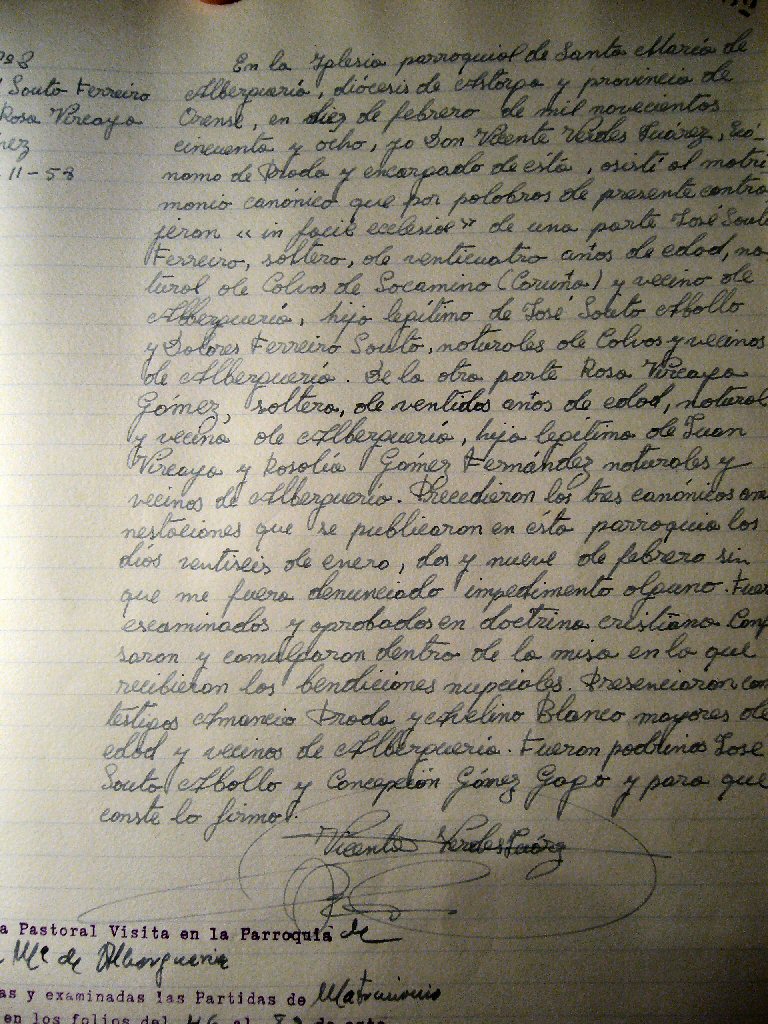 Souto Ferreiro
Rosa Vircaya
11-58
En la Iglesia parroquial de Santa María de
Alberguería, diócesis de Astorga y provincia de
Orense, en diez de febrero de mil novecientos
cincuenta y ocho, yo Don Vicente Verdes Suárez, Ecó-
nomo de Prada y encargado de esta, asistí al matri
monio canónico que por palabras de presente contra
jeron «in facie ecclesiae» de una parte José Souto
Ferreiro, soltero, de venticuatro años de edad, na
tural de Calvos de Socamino (Coruña) y vecino de
Alberguería, hijo legítimo de José Souto Abollo
y Dolores Ferreiro Souto, naturales de Calvos y vecinos
de Alberguería. De la otra parte Rosa Vircaya
Gómez, soltera, de ventidos años de edad, natural
y vecina de Alberguería, hija legítima de Juan
Vircaya y Rosalía Gómez Fernández naturales y
vecinos de Alberguería. Precedieron las tres canónicas amo
nestaciones que se publicaron en ésta parroquia los
días ventiseis de enero, dos y nueve de febrero sin
que me fuera denunciado impedimento alguno. Fuer
escaminados y aprobados en doctrina cristiana Conf
saron y comulgaron dentro de la misa en la que
recibieron las bendiciones nupciales. Presenciaron com
testigos Amancio Prada y Avelino Blanco mayores de
edad y vecinos de Alberguería. Fueron padrinos José
Souto Abollo y Concepción Gómez Gago y para que
conste lo firmo.
Vicente Verdes Suárez
a Pastoral Visita en la Parroquia de
Mª de Alberguería
as y examinadas las Partidas de Matrimonio
en los folios del 46 al 82 de este